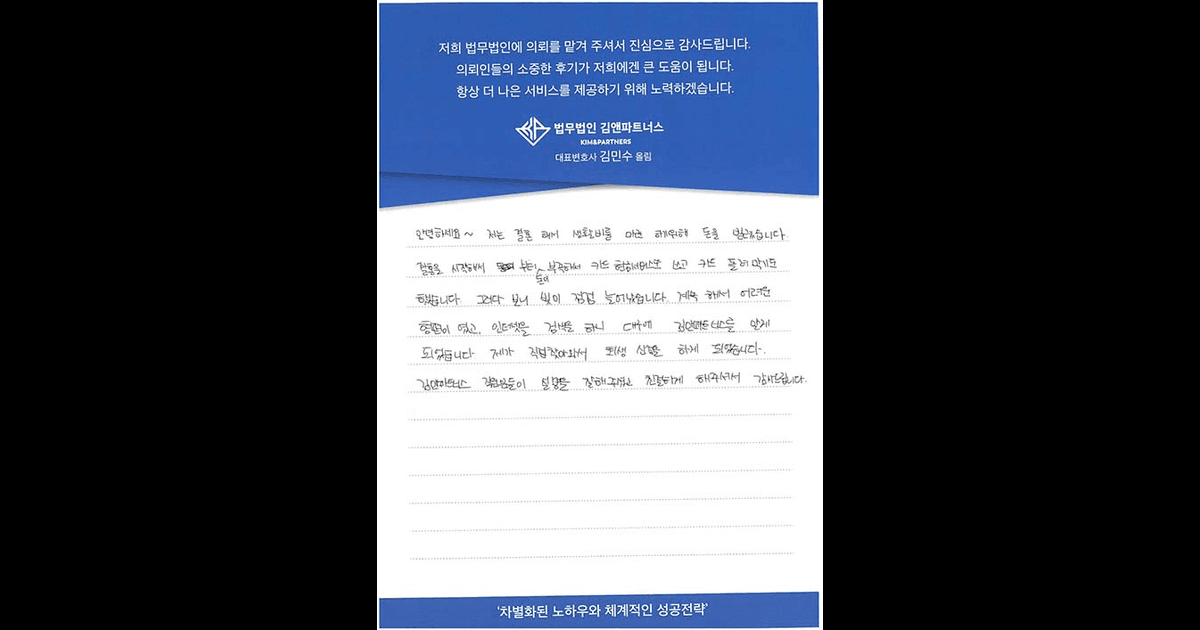 저희 법무법인에 의뢰를 맡겨 주셔서 진심으로 감사드립니다.
의뢰인들의 소중한 후기가 저희에겐 큰 도움이 됩니다.
항상 더 나은 서비스를 제공하기 위해 노력하겠습니다.
법무법인 김앤파트너스
KIM&PARTNERS
대표변호사 김민수 올림
안녕하세요~ 저는 결혼 해서 생활비를 마련 하기위해 돈을 빌렸습니다.
결혼을 시작해서 부터 돈이 부족해서 카드 현금서비스도 쓰고 카드 돌려막기도
했습니다. 그러다 보니 빚이 점점 늘어났습니다. 계속 해서 어려운
형편이 였고, 인터넷을 검색을 하니 대구에 김앤파트너스를 알게
되었습니다. 제가 직접찾아와서 회생 상담을 하게 되었습니다.
김앤파트너스 직원분들이 설명을 잘해주시고 친절하게 해주셔서 감사드립니다.
‘차별화된 노하우와 체계적인 성공전략’